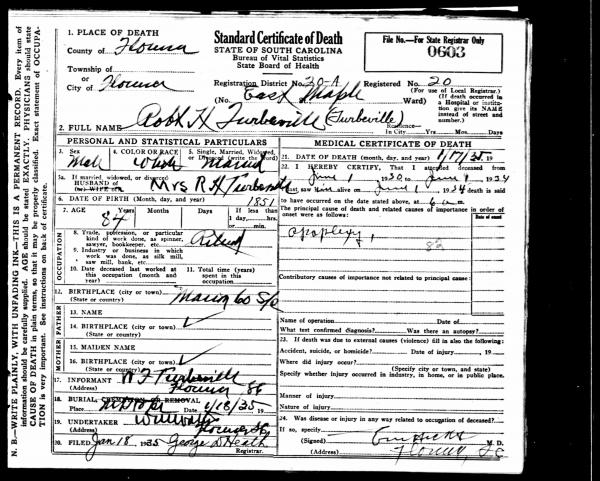 N. B.—WRITE PLAINLY, WITH UNFADING INK—THIS IS A PERMANENT RECORD. Every item of
information should be carefully supplied. AGE should be stated EXACTLY. PHYSICIANS should state
CAUSE OF DEATH in plain terms, so that it may be properly classified. Exact statement of OCCUPA-
TION is very important. See instructions on back of certificate.
1. PLACE OF DEATH
County of
Township of
or
City of
Standard Certificate of Death
STATE OF SOUTH CAROLINA
Bureau of Vital Statistics
State Board of Health
File No.—For State Registrar Only
0603
Registration District No. 20-A Registered No. 20
(No. East Maple Ward)
(For use of Local Registrar.)
(If death occurred in
a Hospital or institu-
tion give its NAME
instead of street and
number.)
2. FULL NAME Robt H Turbeville (Turbeville)
Residence—
In City Yrs. Mos. Days
PERSONAL AND STATISTICAL PARTICULARS
3. Sex
Male
4. COLOR OR RACE
White
5. Single, Married, Widowed,
or Divorced (write the word)
Married
5a. If married, widowed, or divorced
HUSBAND of
(or) WIFE of
Mrs R H Turbeville
6. DATE OF BIRTH (Month, day, and year) 1851
7. AGE Years Months Days If less than
1 day, hrs.
or min.
84
8. Trade, profession, or particular
kind of work done, as spinner,
sawyer, bookkeeper, etc.
Retired
9. Industry or business in which
work was done, as silk mill,
saw mill, bank, etc.
10. Date deceased last worked at
this occupation (month and
year)
11. Total time (years)
spent in this
occupation
OCCUPATION
12. BIRTHPLACE (city or town)
(State or country)
Marion Co S/C
FATHER
13. NAME
14. BIRTHPLACE (city or town)
(State or country)
MOTHER
15. MAIDEN NAME
16. BIRTHPLACE (city or town)
(State or country)
17. INFORMANT W F Turbeville
(Address)
18. BURIAL, CREMATION OR REMOVAL
Place Date 1/18/35 19
19. UNDERTAKER
(Address)
20. FILED Jan 18 1935 George D Heath
Registrar.
MEDICAL CERTIFICATE OF DEATH
21. DATE OF DEATH (month, day, and year) 1/17/35 19
22. I HEREBY CERTIFY, That I attended deceased from
June 1 1930 to June 1 1934
I last saw him alive on June 1 1934 death is said
to have occurred on the date stated above, at 6 a m
The principal cause of death and related causes of importance in order of
onset were as follows:
Date of onset
apoplexy
82
Contributory causes of importance not related to principal cause:
Name of operation Date of
What test confirmed diagnosis? Was there an autopsy?
23. If death was due to external causes (violence) fill in also the following:
Accident, suicide, or homicide? Date of injury 19
Where did injury occur?
(Specify city or town, and state)
Specify whether injury occurred in industry, in home, or in public place.
Manner of injury
Nature of injury
24. Was disease or injury in any way related to occupation of deceased?
If so, specify
(Signed) M. D.
(Address)